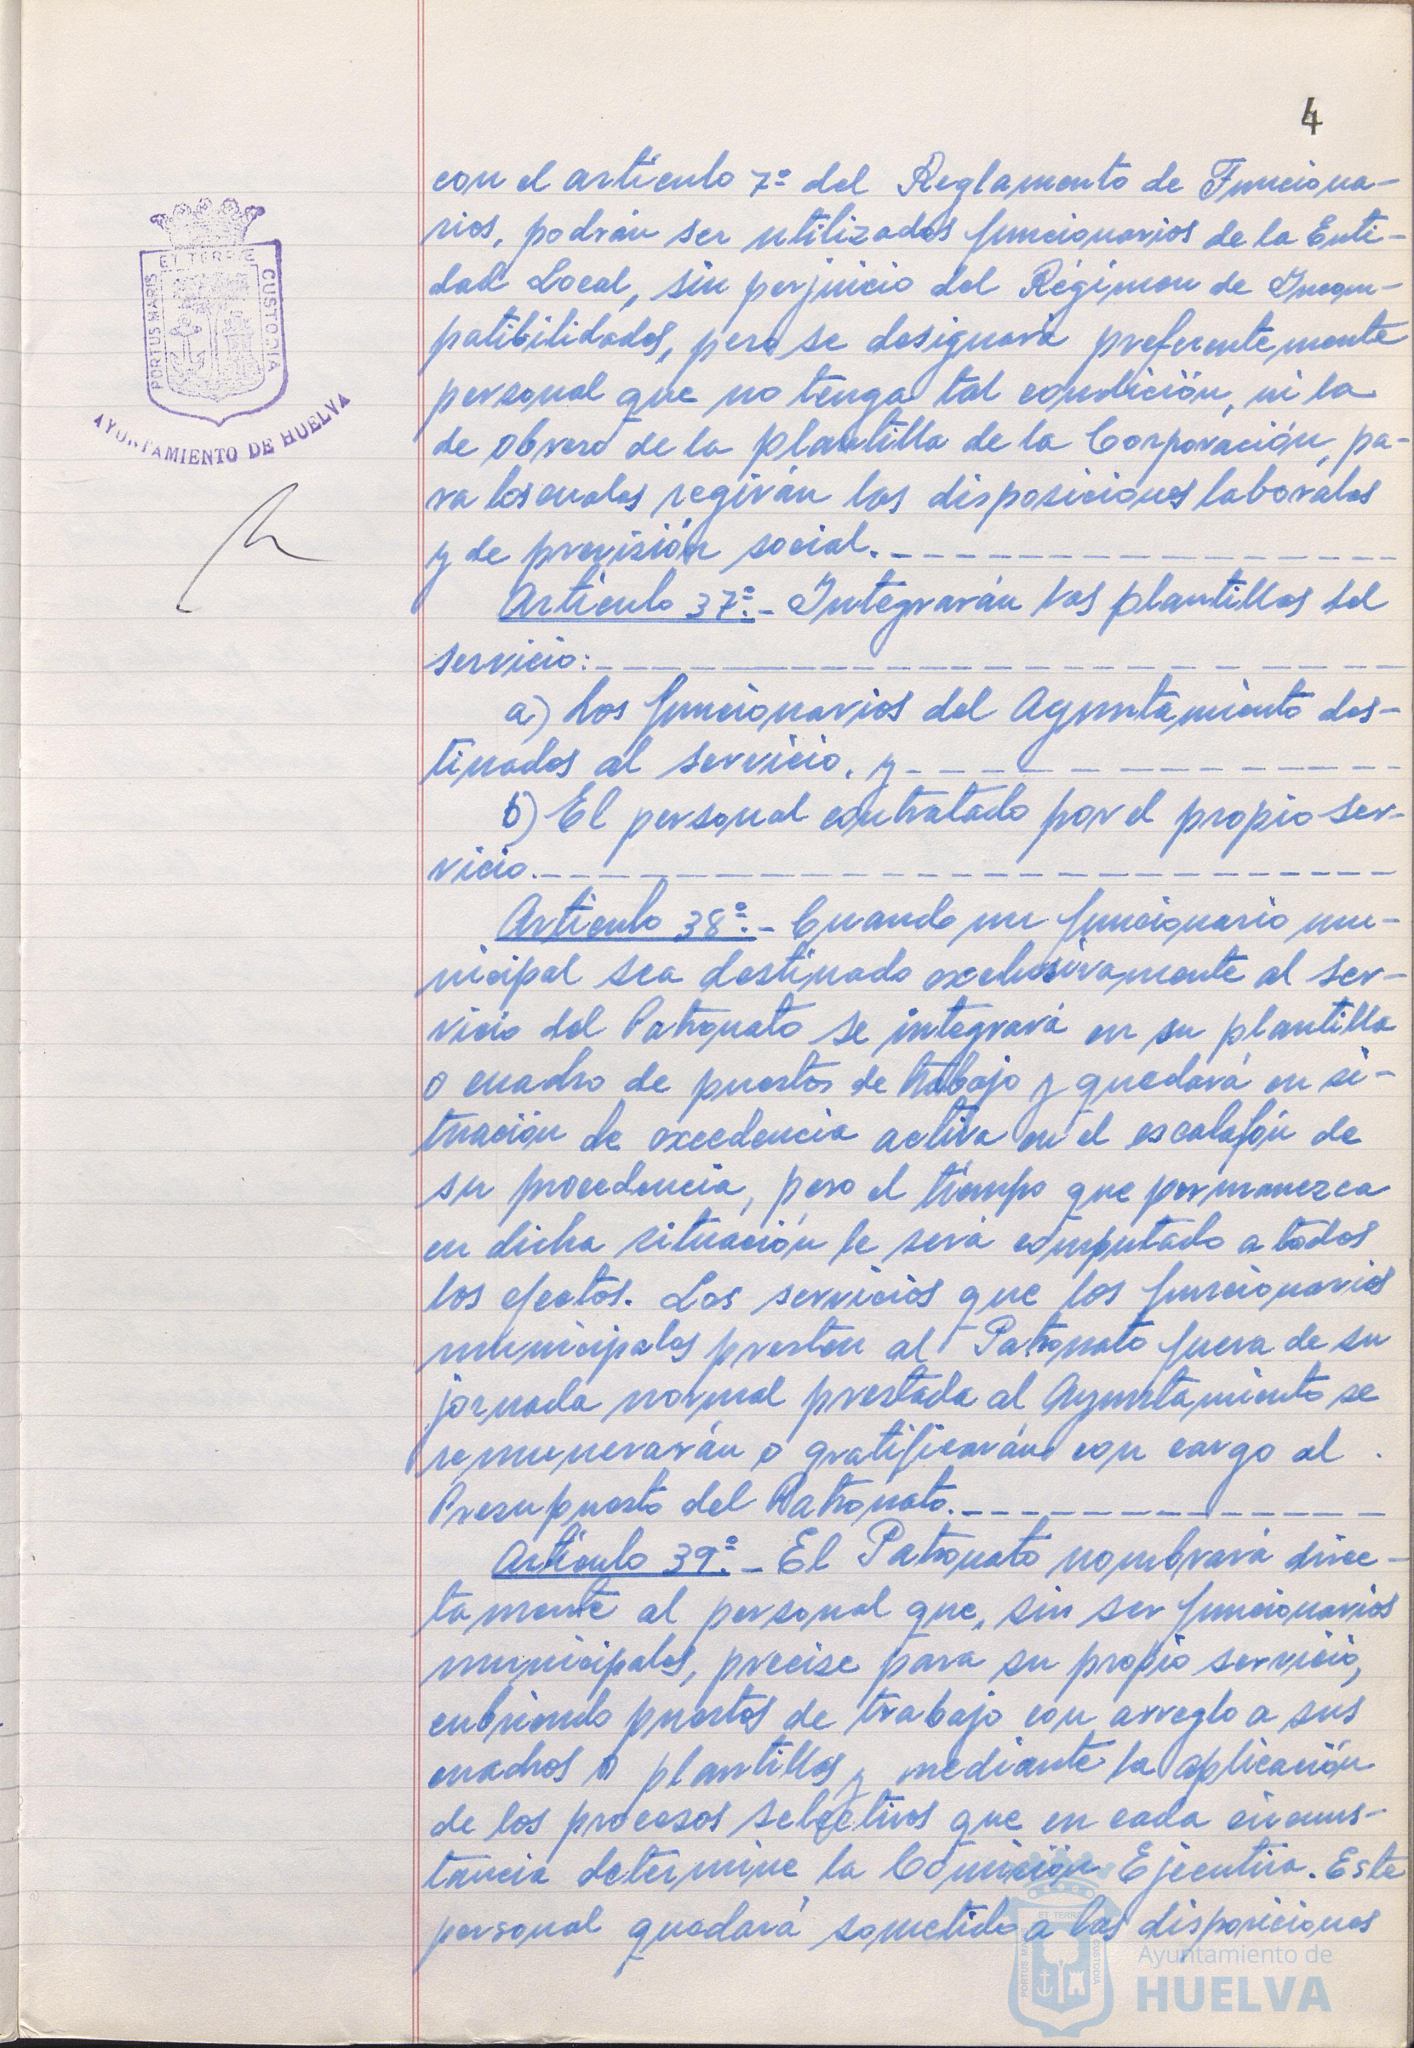 4
con el artículo 7º del Reglamento de Funciona-
rios, podrán ser utilizados funcionarios de la Enti-
dad Local, sin perjuicio del Régimen de Incom-
patibilidades, pero se designará preferentemente
personal que no tenga tal condición, ni la
de obrero de la plantilla de la Corporación, pa-
ra los cuales regirán las disposiciones laborales
y de previsión social.
Artículo 37º.- Integrarán las plantillas del
servicio:
a) Los funcionarios del Ayuntamiento des-
tinados al servicio, y
b) El personal contratado por el propio ser-
vicio.
Artículo 38º.- Cuando un funcionario mu-
nicipal sea destinado exclusivamente al ser-
vicio del Patronato se integrará en su plantilla
o cuadro de puestos de trabajo y quedará en si-
tuación de excedencia activa en el escalafón de
su procedencia, pero el tiempo que permanezca
en dicha situación le será computado a todos
los efectos. Los servicios que los funcionarios
municipales presten al Patronato fuera de su
jornada normal prestada al Ayuntamiento se
remunerarán o gratificarán con cargo al
Presupuesto del Patronato.
Artículo 39º.- El Patronato nombrará direc-
tamente al personal que, sin ser funcionarios
municipales, precise para su propio servicio,
cubriendo puestos de trabajo con arreglo a sus
cuadros o plantillas y mediante la aplicación
de los procesos selectivos que en cada circuns-
tancia determine la Comisión Ejecutiva. Este
personal quedará sometido a las disposiciones
PORTUS MARIS ET TERRAE CUSTODIA
AYUNTAMIENTO DE HUELVA
Ayuntamiento de
HUELVA